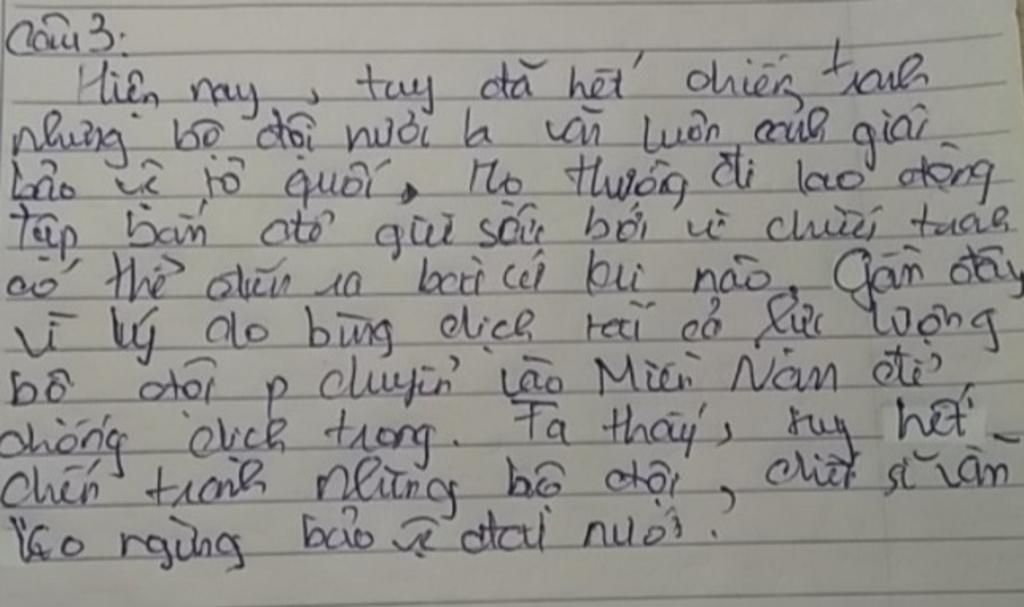 Câu 3:
Hiện nay, tuy đã hết chiến tranh
nhưng bộ đội nước ta vẫn luôn cảnh giác
bảo vệ tổ quốc. Họ thường đi lao động
tập bắn để giữ sức bởi vì chiến tranh
có thể diễn ra bất cứ khi nào. Gần đây
vì lý do bùng dịch rất có lực lượng
bộ đội p chuyển vào Miền Nam để
chống dịch trong. Ta thấy, tuy hết
chiến tranh nhưng bộ đội, chiến sĩ vẫn
ko ngừng bảo vệ đất nước.